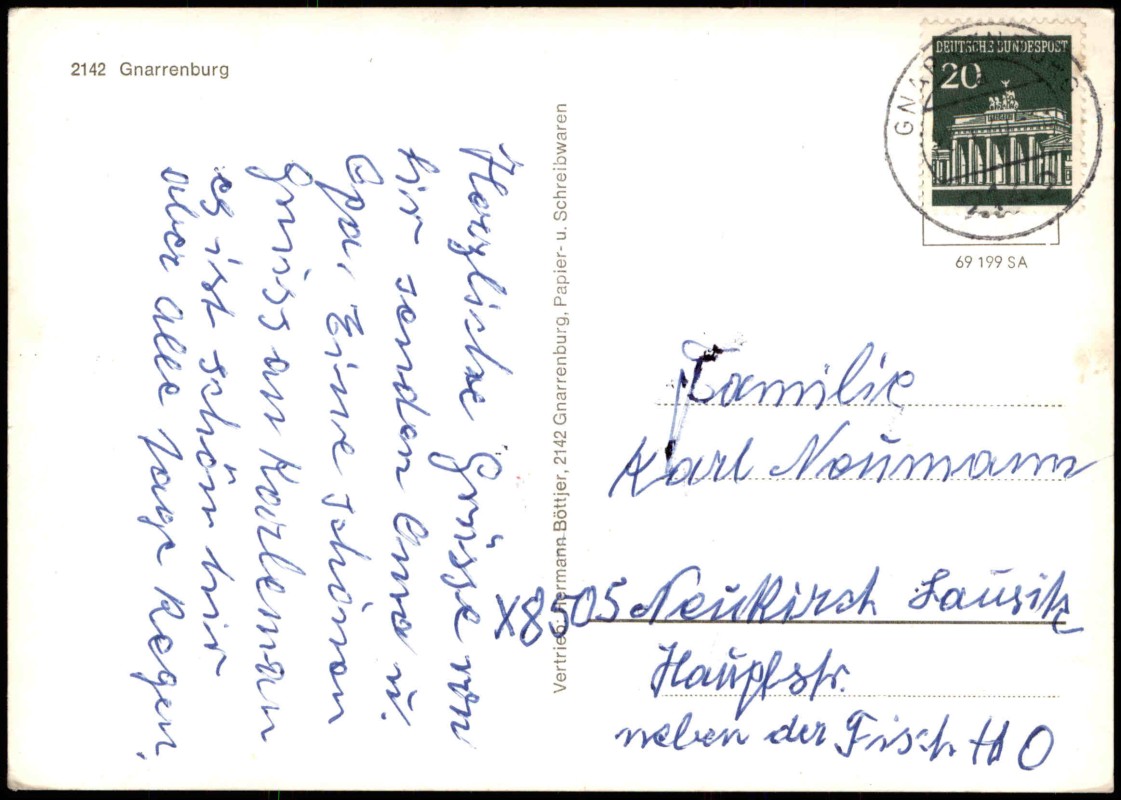 2142 Gnarrenburg
Herzliche Grüsse von
hir senden Oma u.
Opa, Eine schönen
Gruss an Karleman
es ist schön hir
aber alle tage Regen.
Vertrieb: Hermann Böttjer, 2142 Gnarrenburg, Papier- u. Schreibwaren
DEUTSCHE BUNDESPOST
20
GNARRENBURG
2142
69 199 SA
Familie
Karl Neumann
X8505 Neukirch Lausitz
Hauptstr.
neben der Fisch HO